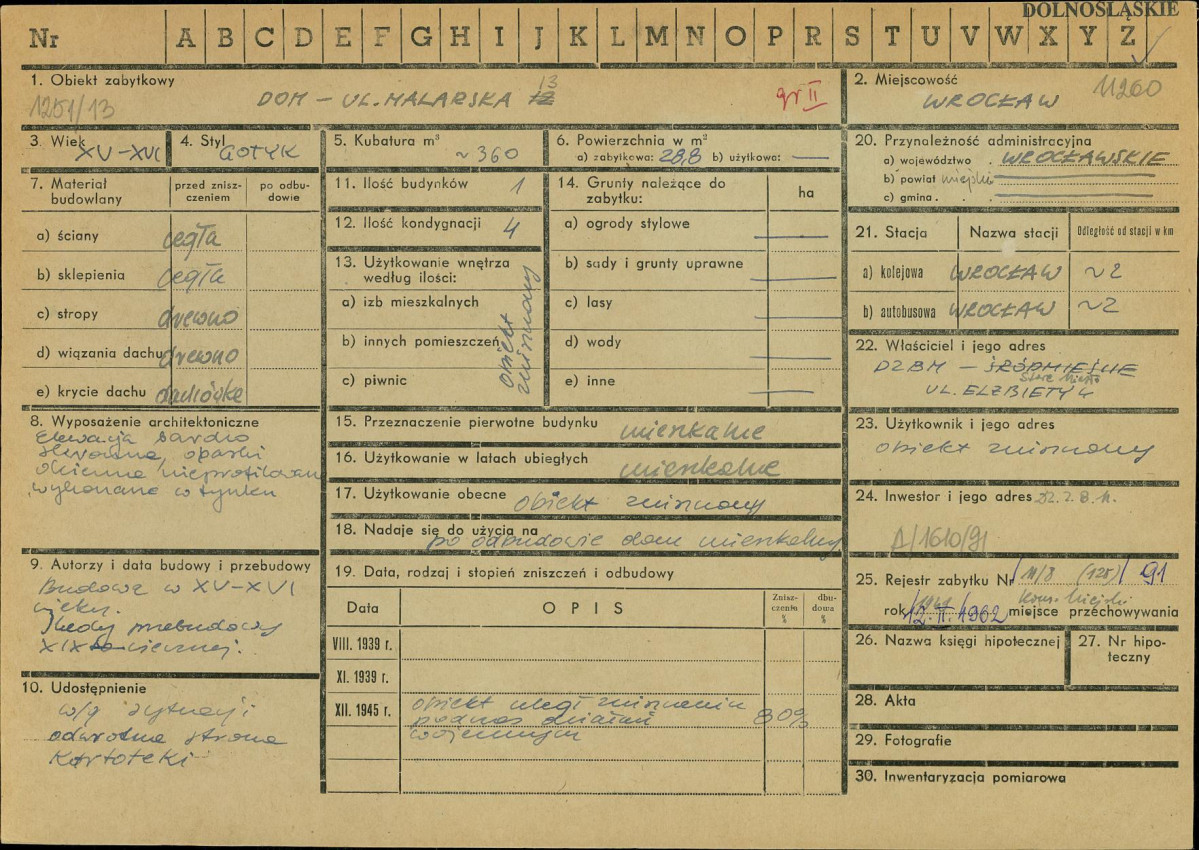 DOLNOSLĄSKIE
Nr A B C D E F G H I J K L M N O P R S T U V W X Y Z
1. Obiekt zabytkowy
1251/13
DOM – UL. MALARSKA 12 13
gr II
2. Miejscowość
WROCŁAW
11260
3. Wiek
XV–XVI
4. Styl
GOTYK
5. Kubatura m³
~360
6. Powierzchnia w m²
a) zabytkowa: 28,8 b) użytkowa: —
7. Materiał budowlany
przed zniszczeniem
po odbudowie
a) ściany cegła
b) sklepienia cegła
c) stropy drewno
d) wiązania dachu drewno
e) krycie dachu dachówka
8. Wyposażenie architektoniczne
Elewacja bardzo
skromna, opaski
okienne nieprofilowane
wykonane w tynku
9. Autorzy i data budowy i przebudowy
Budowa w XV–XVI
wieku.
Ślady przebudowy
XIX wiecznej.
10. Udostępnienie
w/g sytuacji
odwrotna strona
Kartoteki
11. Ilość budynków 1
12. Ilość kondygnacji 4
13. Użytkowanie wnętrza
według ilości:
a) izb mieszkalnych
b) innych pomieszczeń
c) piwnic
obiekt
zniszczony
14. Grunty należące do
zabytku:
ha
a) ogrody stylowe —
b) sady i grunty uprawne —
c) lasy —
d) wody —
e) inne —
15. Przeznaczenie pierwotne budynku mieszkalne
16. Użytkowanie w latach ubiegłych mieszkalne
17. Użytkowanie obecne obiekt zniszczony
18. Nadaje się do użycia na
po odbudowie dom mieszkalny
19. Data, rodzaj i stopień zniszczeń i odbudowy
Data
OPIS
Zniszczenia %
dbudowa %
VIII. 1939 r.
XI. 1939 r.
XII. 1945 r.
obiekt uległ zniszczeniu
podczas działań
wojennych
80%
20. Przynależność administracyjna
a) województwo . WROCŁAWSKIE
b) powiat miejski
c) gmina . . .
21. Stacja
Nazwa stacji
Odległość od stacji w km
a) kolejowa WROCŁAW ~2
b) autobusowa WROCŁAW ~2
22. Właściciel i jego adres
DZBM – ŚRÓDMIEŚCIE
Stare Miasto
UL. ELŻBIETY 4
23. Użytkownik i jego adres
obiekt zniszczony
24. Inwestor i jego adres
A/1610/91
25. Rejestr zabytku Nr 111/3 (125) / 91
Kons. Miejski
rok 12.II.1962 miejsce przechowywania
26. Nazwa księgi hipotecznej
27. Nr hipoteczny
28. Akta
29. Fotografie
30. Inwentaryzacja pomiarowa